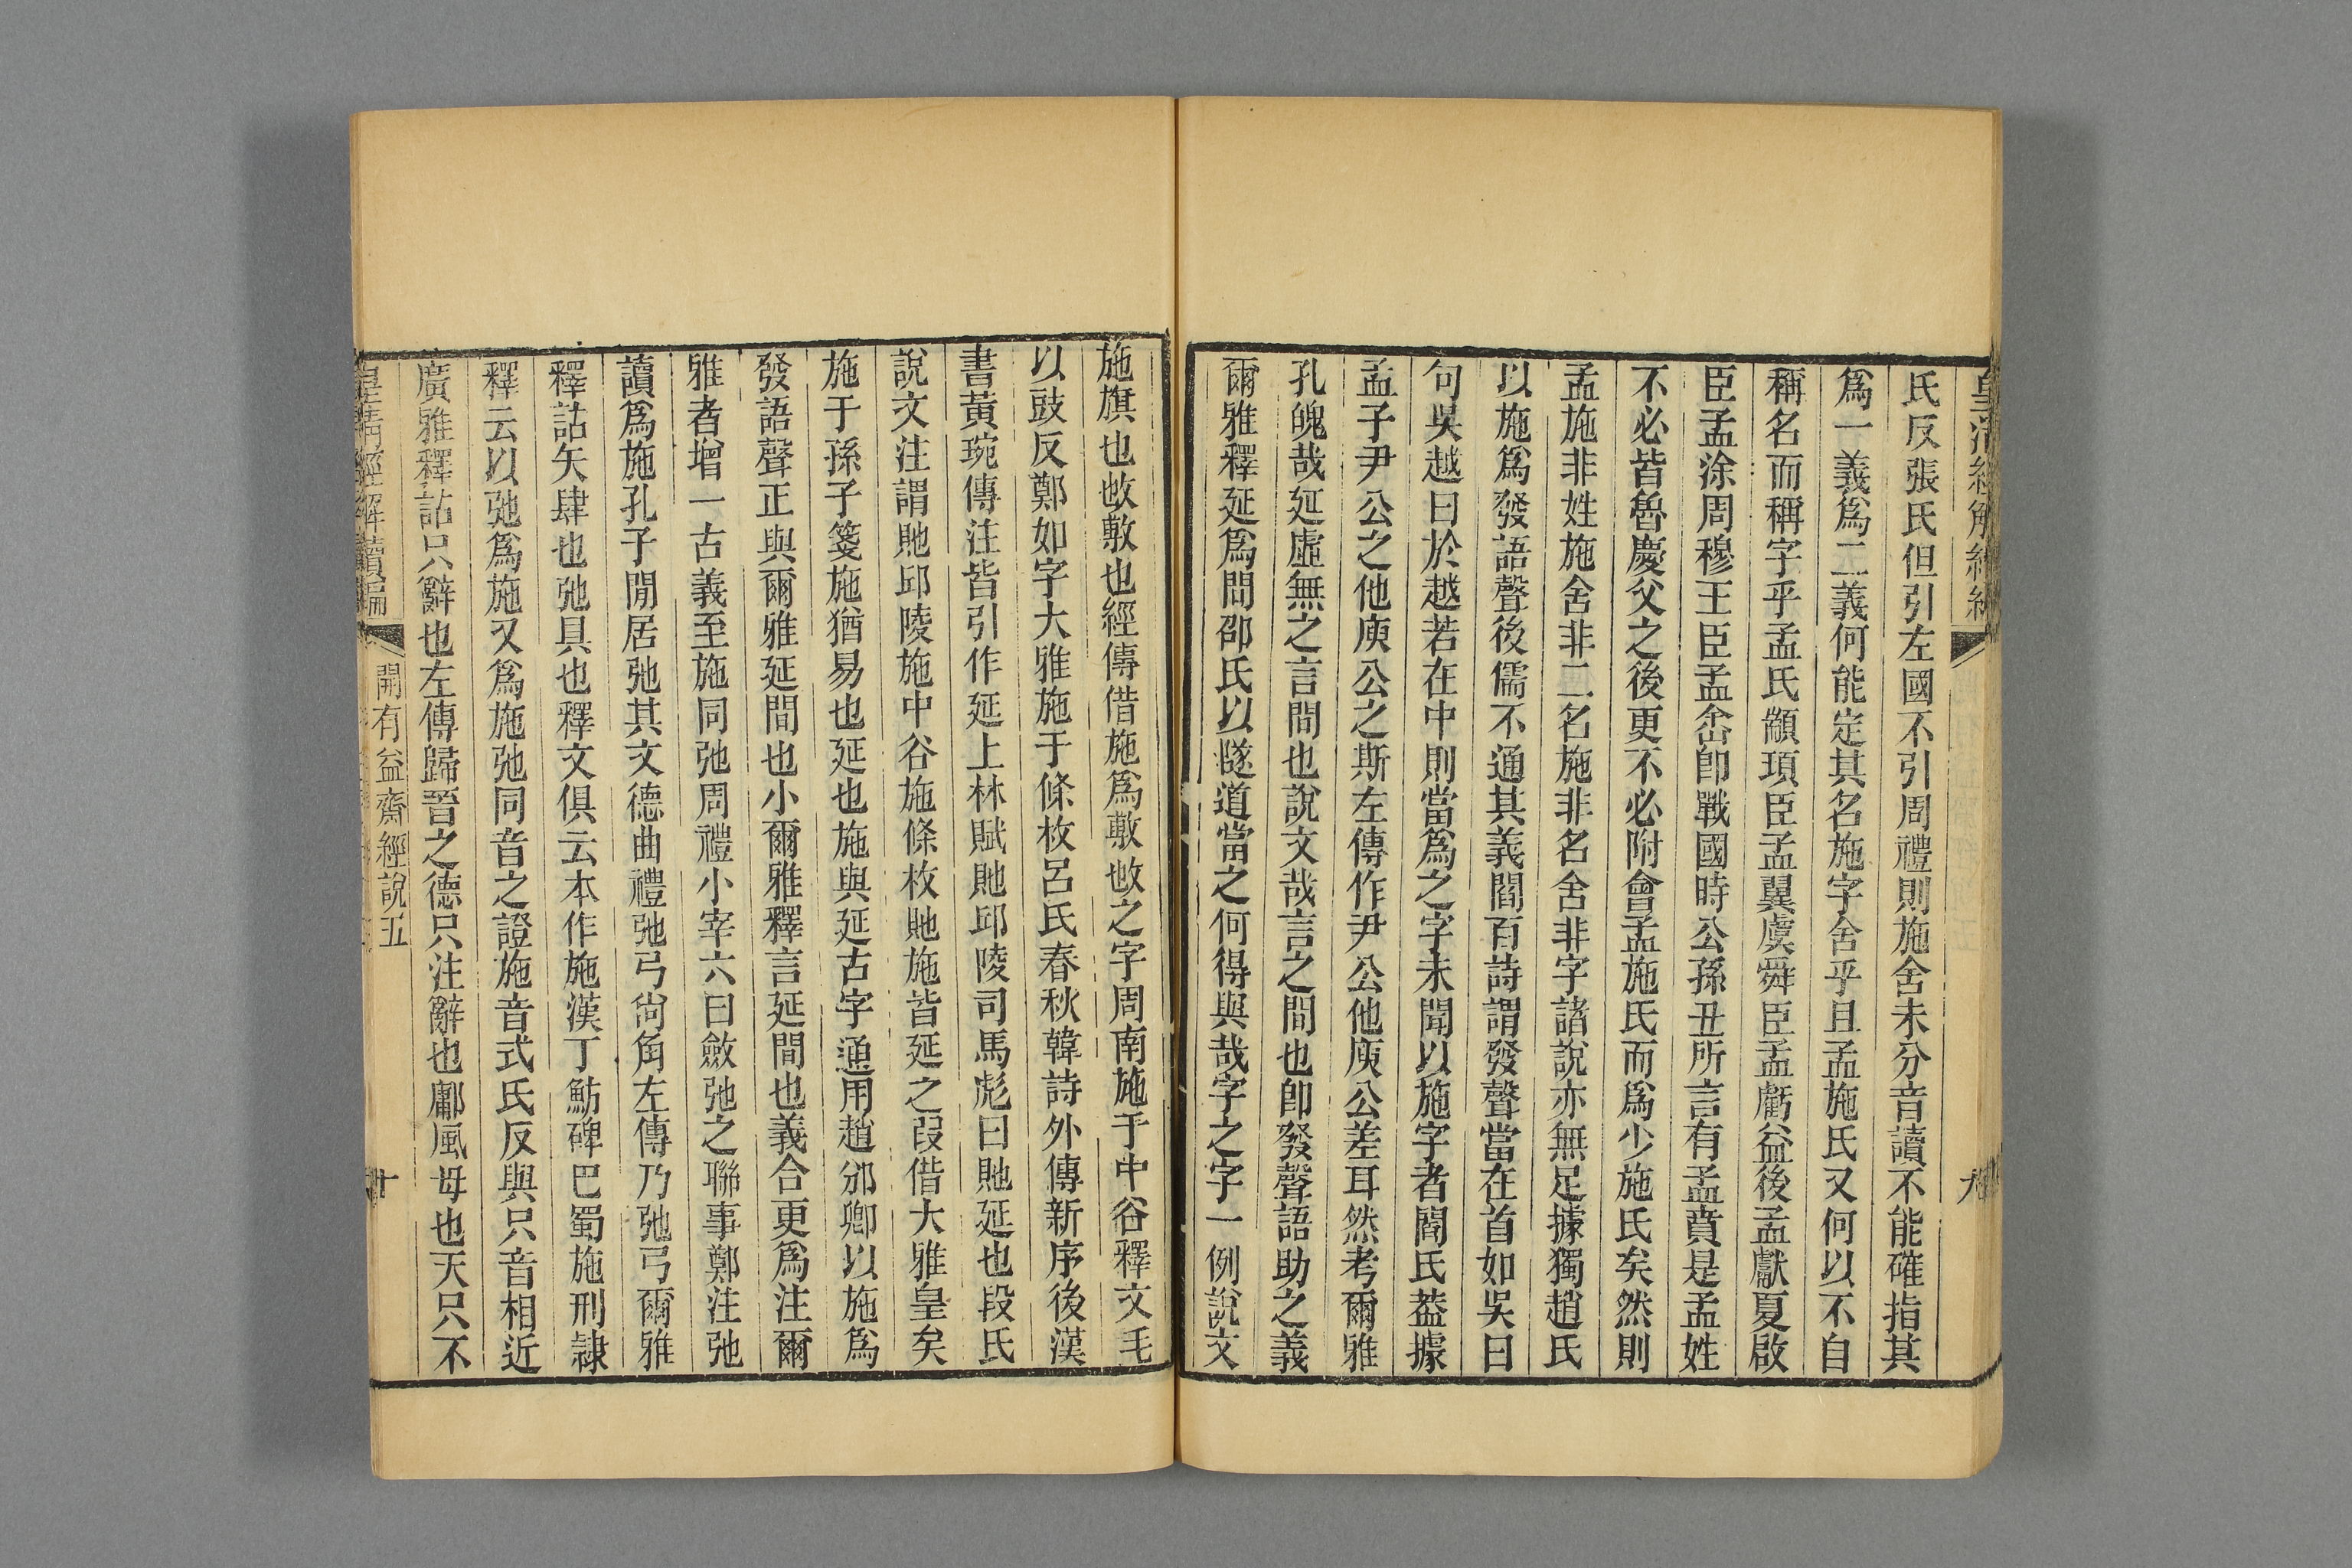 氏反張氏但引左國不引周禮則施舍未分音讀不能確指其
爲一義爲二義何能定其名施字舍乎且孟施氏又何以不自
稱名而稱字乎孟氏顓頊臣孟翼虞舜臣孟虧益後孟獻夏啟
臣孟涂周穆王臣孟悆卽戰國時公孫丑所言有孟賁是孟姓
不必皆魯慶父之後更不必附會孟施氏而爲少施氏矣然則
孟施非姓施舍非二名施非名舍非字諸說亦無足據獨趙氏
以施爲發語聲後儒不通其義閻百詩謂發聲當在首如吳曰
句吳越曰於越若在中則當爲之字未聞以施字者閻氏葢據
孟子尹公之他庾公之斯左傳作尹公他庾公差耳然考爾雅
孔魄哉延虛無之言間也說文哉言之間也卽發聲語助之義
爾雅釋延爲間邵氏以隧道當之何得與哉字之字一例說文
施旗也㪅敷也經傳借施爲敷㪅之字周南施于中谷釋文毛
以豉反鄭如字大雅施于條枚呂氏春秋韓詩外傳新序後漢
書黃琬傳注皆引作延上林賦貤邱陵司馬彪曰貤延也段氏
說文注謂貤邱陵施中谷施條枚貤施皆延之叚借大雅皇矣
施于孫子箋施猶易也延也施與延古字通用趙邠卿以施爲
發語聲正與爾雅延間也小爾雅釋言延間也義合更爲注爾
雅者增一古義至施同弛周禮小宰六曰斂弛之聯事鄭注弛
讀爲施孔子閒居弛其文德曲禮弛弓尙角左傳乃弛弓爾雅
釋詁矢肆也弛具也釋文俱云本作施漢丁魴碑巴蜀施刑隷
釋云以弛爲施又爲施弛同音之證施音式氏反與只音相近
廣雅釋詁只辭也左傳歸晉之德只注辭也鄘風母也天只不
皇淸經解續編
開有益齋經說五
十